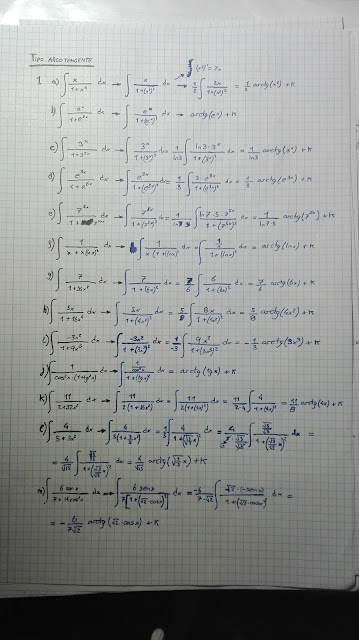 TIPO ARCOTANGENTE
(x²)' = 2x
1. a) ∫ x/(1+x⁴) dx → ∫ x/(1+(x²)²) → 1/2 ∫ 2x/(1+(x²)²) = 1/2 arctg(x²) + K
b) ∫ eˣ/(1+e²ˣ) dx → ∫ eˣ/(1+(eˣ)²) → arctg(eˣ) + K
c) ∫ 3ˣ/(1+3²ˣ) dx → ∫ 3ˣ/(1+(3ˣ)²) dx = 1/ln3 ∫ ln3·3ˣ/(1+(3ˣ)²) dx = 1/ln3 arctg(3ˣ) + K
d) ∫ e³ˣ/(1+e⁶ˣ) dx → ∫ e³ˣ/(1+(e³ˣ)²) dx = 1/3 ∫ 3·e³ˣ/(1+(e³ˣ)²) dx = 1/3 arctg(e³ˣ) + K
e) ∫ 7⁵ˣ/(1+7¹⁰ˣ) dx → ∫ 7⁵ˣ/(1+(7⁵ˣ)²) dx = 1/(ln7·5) ∫ ln7·5·7⁵ˣ/(1+(7⁵ˣ)²) dx = 1/(ln7·5) arctg(7⁵ˣ) + K
f) ∫ 1/(x+x(lnx)²) dx → ∫ 1/(x(1+(lnx)²)) dx → ∫ (1/x)/(1+(lnx)²) dx = arctg(lnx) + K
g) ∫ 7/(1+36x²) dx → ∫ 7/(1+(6x)²) dx = 7/6 ∫ 6/(1+(6x)²) dx = 7/6 arctg(6x) + K
h) ∫ 5x/(1+16x⁴) dx → ∫ 5x/(1+(4x²)²) dx = 5/8 ∫ 8x/(1+(4x²)²) dx = 5/8 arctg(4x²) + K
i) ∫ -3x²/(1+9x⁶) dx → ∫ -3x²/(1+(3x³)²) dx = 1/-3 ∫ 9x²/(1+(3x³)²) dx = -1/3 arctg(3x³) + K
j) ∫ 1/(cos²x·(1+tg²x)) dx → ∫ (1/cos²x)/(1+(tgx)²) dx = arctg(tgx) + K
k) ∫ 11/(2+32x²) dx → ∫ 11/(2(1+16x²)) dx = ∫ 11/(2(1+(4x)²)) dx = 11/(2·4) ∫ 4/(1+(4x)²) dx = 11/8 arctg(4x) + K
l) ∫ 4/(5+3x²) dx → ∫ 4/(5(1+3/5x²)) dx = 1/5 ∫ 4/(1+(√3/5 x)²) dx =
= 4/√15 ∫ dx = 4/√15 arctg(√3/5 x) + K
m) ∫ 6senx/(7+14cos²x) dx → ∫ 6senx/(7[1+(√2·cosx)²]) dx = -6/(7·√2) ∫ √2·(-senx)/(1+(√2·cosx)²) dx =
= -6/(7√2) arctg(√2·cosx) + K